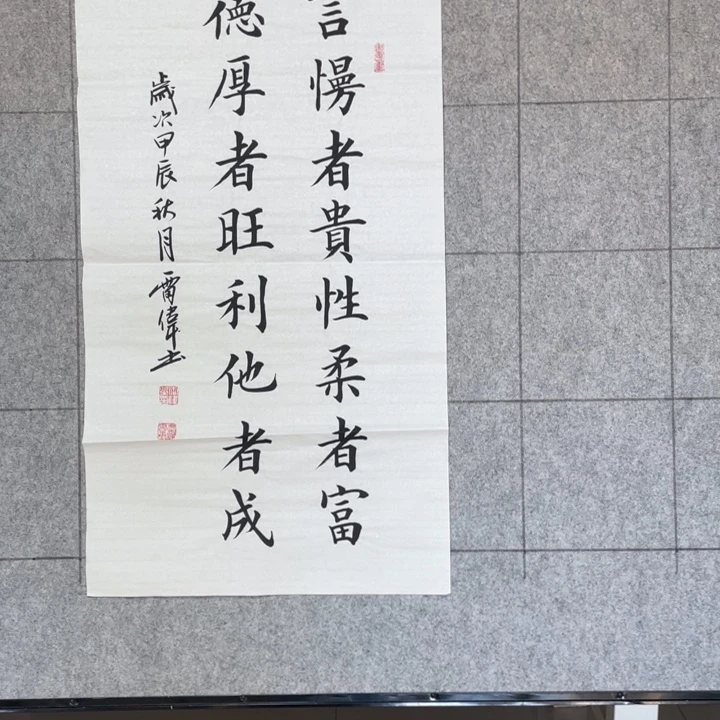 言慢者貴性柔者富
德厚者旺利他者成
歲次甲辰秋月雷偉書